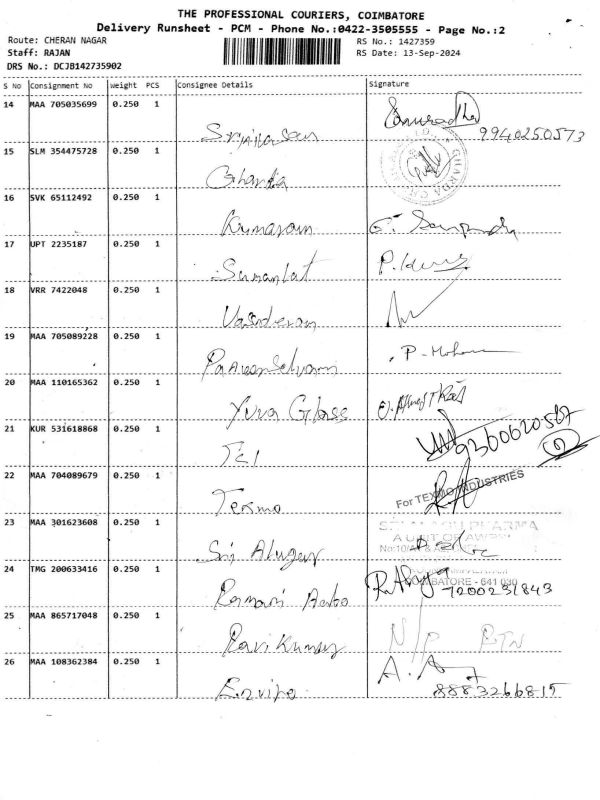 THE PROFESSIONAL COURIERS, COIMBATORE
Delivery Runsheet - PCM - Phone No.:0422-3505555 - Page No.:2
Route: CHERAN NAGAR RS No.: 1427359
Staff: RAJAN RS Date: 13-Sep-2024
DRS No.: DCJB142735902
S No Consignment No Weight PCS Consignee Details Signature
14 MAA 705035699 0.250 1
Anuradha
9940250573
15 SLM 354475728 0.250 1
Gharda
16 SVK 65112492 0.250 1
Kumaran
17 UPT 2235187 0.250 1
18 VRR 7422048 0.250 1
Vasudevan
19 MAA 705089228 0.250 1
P-Mohan
20 MAA 110165362 0.250 1
Yuva Glass
21 KUR 531618868 0.250 1
9200620587
Tel
22 MAA 704089679 0.250 1
For TEXMO INDUSTRIES
Texmo
23 MAA 301623608 0.250 1
A UNIT OF
Sri Alagar
24 TMG 200633416 0.250 1
COIMBATORE - 641 030
7200231843
Ramani Auto
25 MAA 865717048 0.250 1
N/P RTN
Ravi Kumar
26 MAA 108362384 0.250 1
Enviro 8883266815